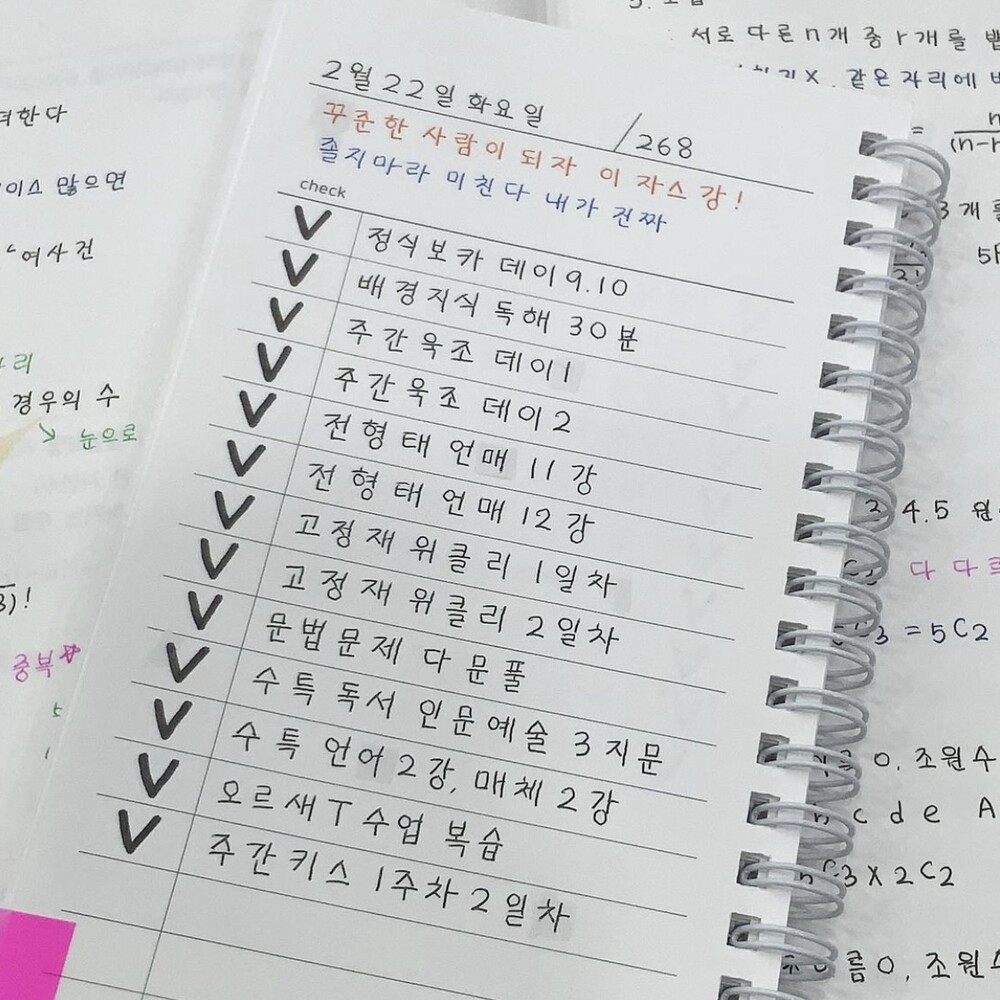 2월 22일 화요일 /268
꾸준한 사람이 되자 이 자스 강!
졸지마라 미친다 내가 진짜
check
정식보카 데이9.10
배경지식 독해 30분
주간육조 데이1
주간육조 데이2
전형태 언매 11강
전형태 언매 12강
고정재 위클리 1일차
고정재 위클리 2일차
문법문제 다 문풀
수특 독서 인문예술 3지문
수특 언어 2강, 매체 2강
오르새T 수업 복습
주간키스 1주차 2일차
많으면
여사건
경우의 수
↘ 눈으로
3)!
중복
5
서로 다른 n개 중 r개를
같은 자리에
=
3개
4.5
다 다르
=5C2
0. 조원수
c d e A
3×2C2
름0, 조원